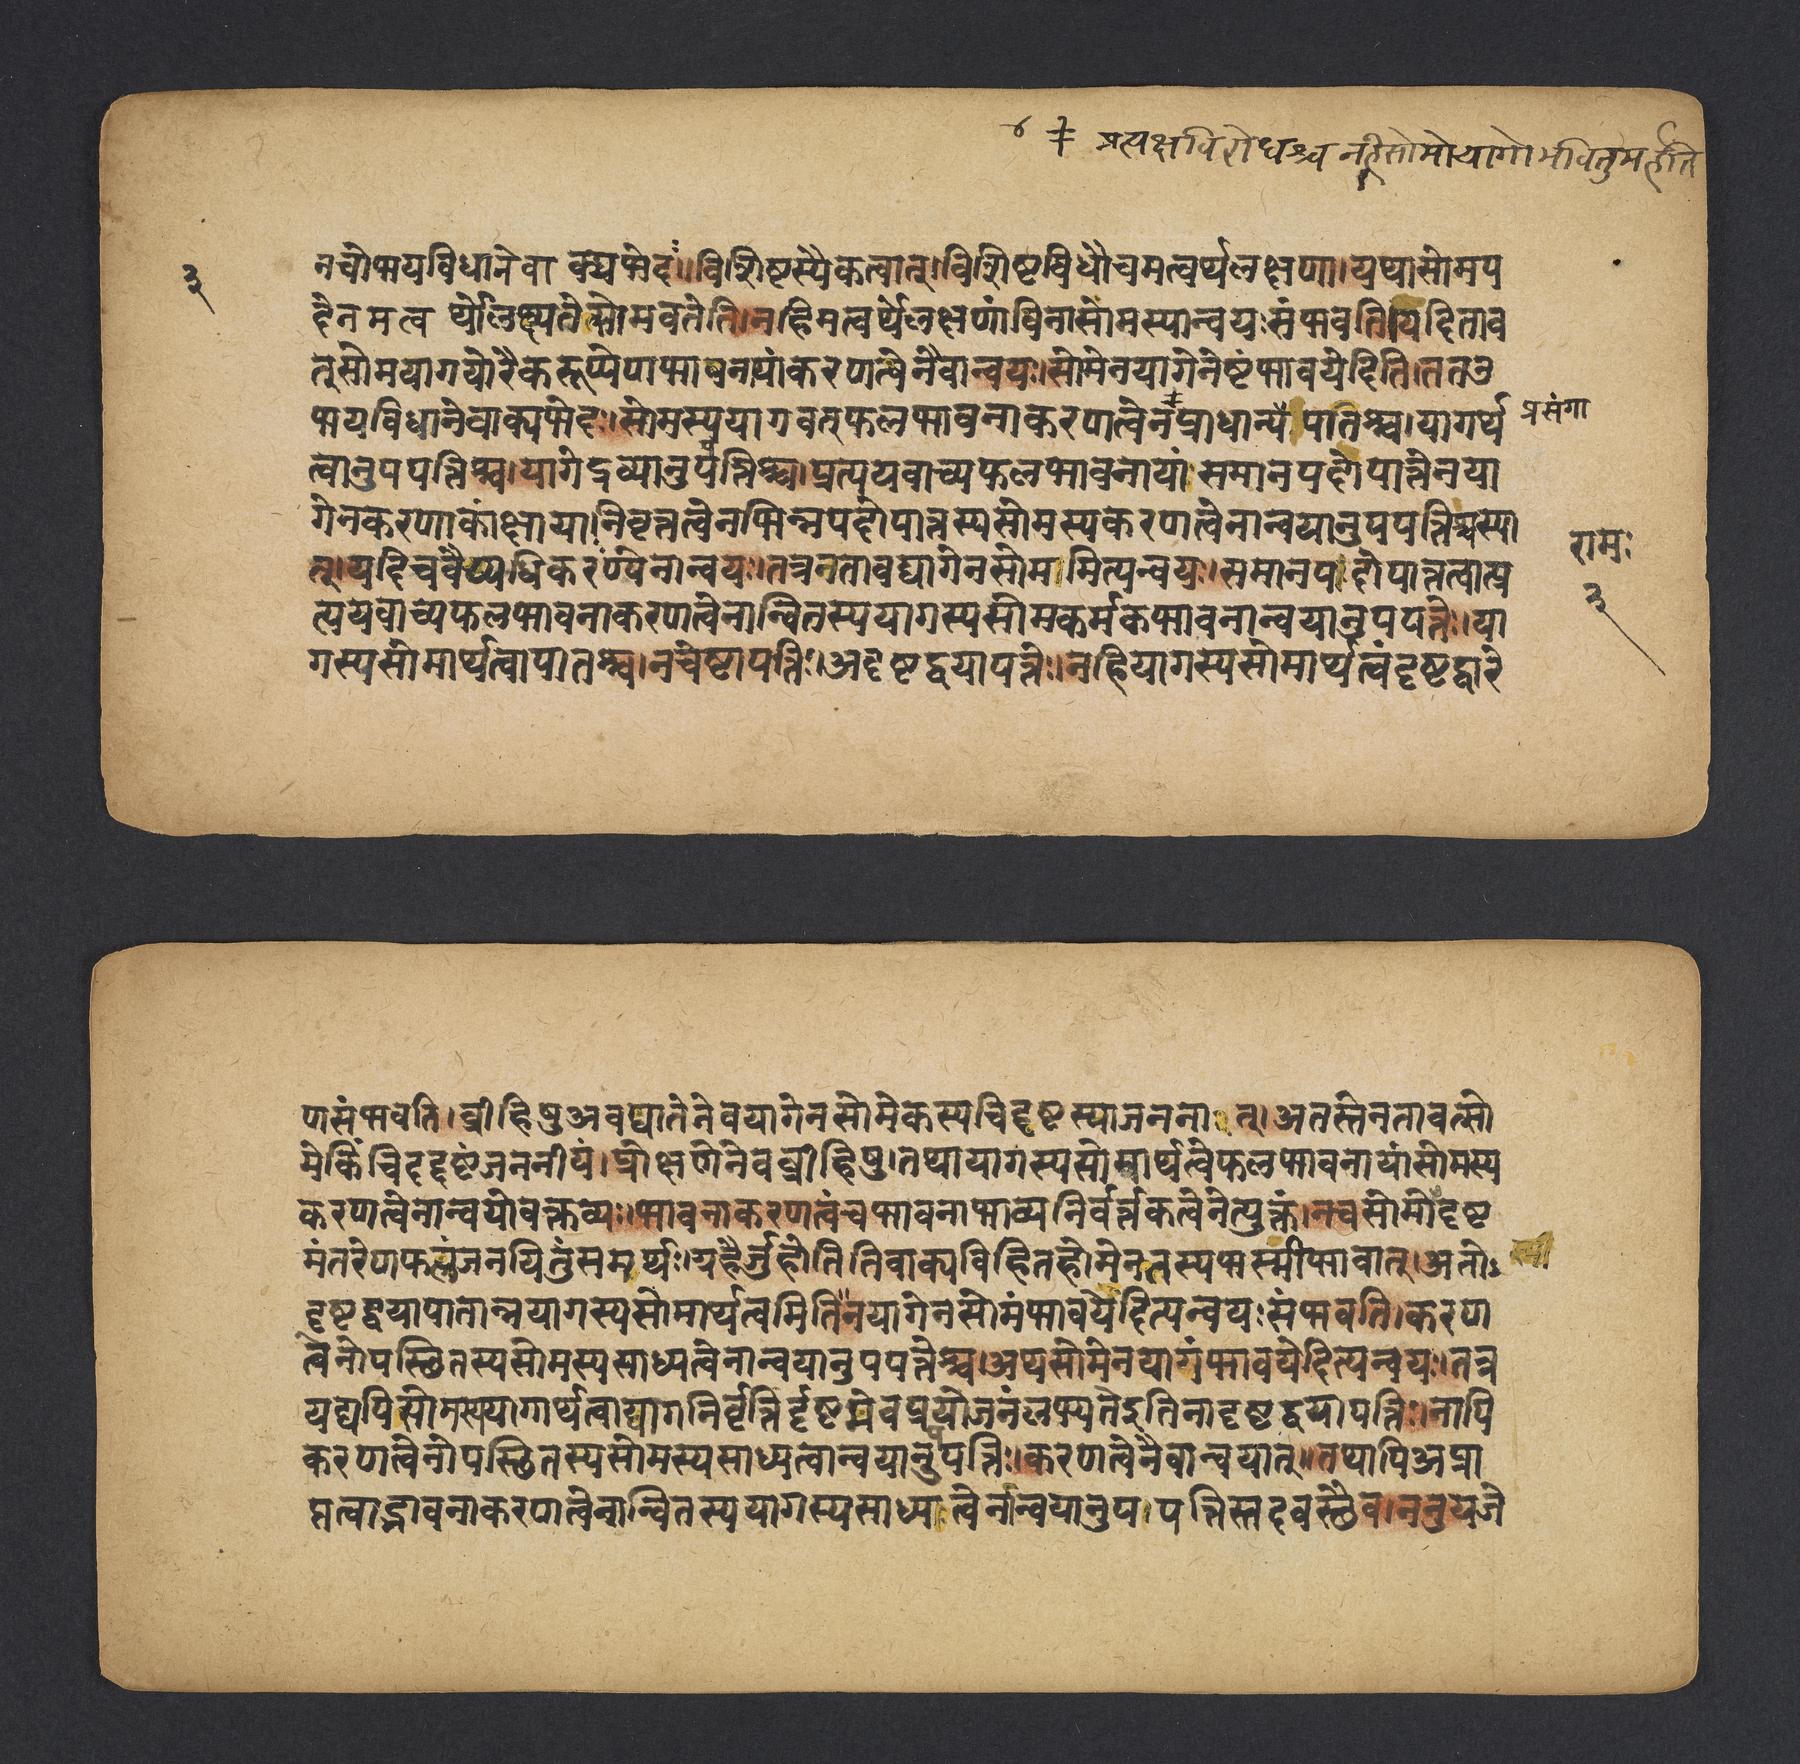 ४ ‡ प्रत्यक्षविरोधश्च नहि सोमो यागो भवितुमर्हति
३
नचोभयविधानेवाक्यभेदः॥विशिष्टस्यैकत्वात्।विशिष्टविधौचमत्वर्थलक्षणा।यथासोमप
देनमत्वर्थोलक्ष्यतेसोमवतेति।नहिमत्वर्थलक्षणांविनासोमस्यान्वयःसंभवति।यदिताव
त्सोमयागयोरैकरूप्येणभावनायांकरणत्वेनैवान्वयः।सोमेनयागेनेष्टंभावयेदिति।ततउ
भयविधानेवाक्यभेदः।सोमस्ययागवत्फलभावनाकरणत्वेन‡प्राधान्यापातश्च।यागर्थ
प्रसंगा
त्वानुपपत्तिश्च।यागेद्रव्यानुपपत्तिश्च।प्रत्ययवाच्यफलभावनायांसमानपदोपात्तेनया
गेनकरणाकांक्षाया।निवृत्तत्वेनभिन्नपदोपात्तस्यसोमस्यकरणत्वेनान्वयानुपपत्तिश्चस्या
रामः
त्।यदिचवैय्यधिकरण्येनान्वयः।तत्रनतावद्यागेनसोममित्यन्वयः।समानपदोपात्तत्वात्प्र
३
त्ययवाच्यफलभावनाकरणत्वेनान्वितस्ययागस्यसोमकर्मकभावनान्वयानुपपत्तेः।या
गस्यसोमार्थत्वापातश्च।नचेष्टापत्तिः।अदृष्टद्वयापत्तेः।नहियागस्यसोमार्थत्वंदृष्टद्वारे
णसंभवति।व्रीहिषुअवघातेनेवयागेनसोमेकस्यचिदृष्टस्याजननात्।अतस्तेनतावत्सो
मेकिंचिददृष्टंजननीयं।प्रोक्षणेनेवव्रीहिषु।तथायागस्यसोमार्थत्वेफलभावनायांसोमस्य
करणत्वेनान्वयोवक्तव्यः।भावनाकरणत्वंचभावनाभाव्यनिर्वर्त्तकत्वेनेत्युक्तं।नचसोमोदृष्ट
मंतरेणफलंजनयितुंसमर्थः।यहैर्जुहोतितिवाक्यविहितहोमेनतस्यभस्मीभावात्।अतो
दृष्टद्वयापातान्नयागस्यसोमार्थत्वमिति"नयागेनसोमंभावयेदित्यन्वयःसंभवति।करण
त्वेनोपस्थितस्यसोमस्यसाध्यत्वेनान्वयानुपपत्तेश्च।अथसोमेनयागंभावयेदित्यन्वयः।तत्र
यद्यपिसोमस्ययागार्थत्वाद्यागनिर्वृत्तिर्दृष्टमेवप्रयोजनंलभ्यतेइतिनादृष्टद्वयापत्तिः।नापि
करणत्वेनोपस्थितस्यसोमस्यसाध्यत्वान्वयानुपपत्तिः।करणत्वेनैवान्वयात्॥तथापिअप्रा
प्तत्वाद्भावनाकरणत्वेनान्वितस्ययागस्यसाध्यत्वेनान्वयानुपपत्तिस्तदवस्थैव।ननुयजे